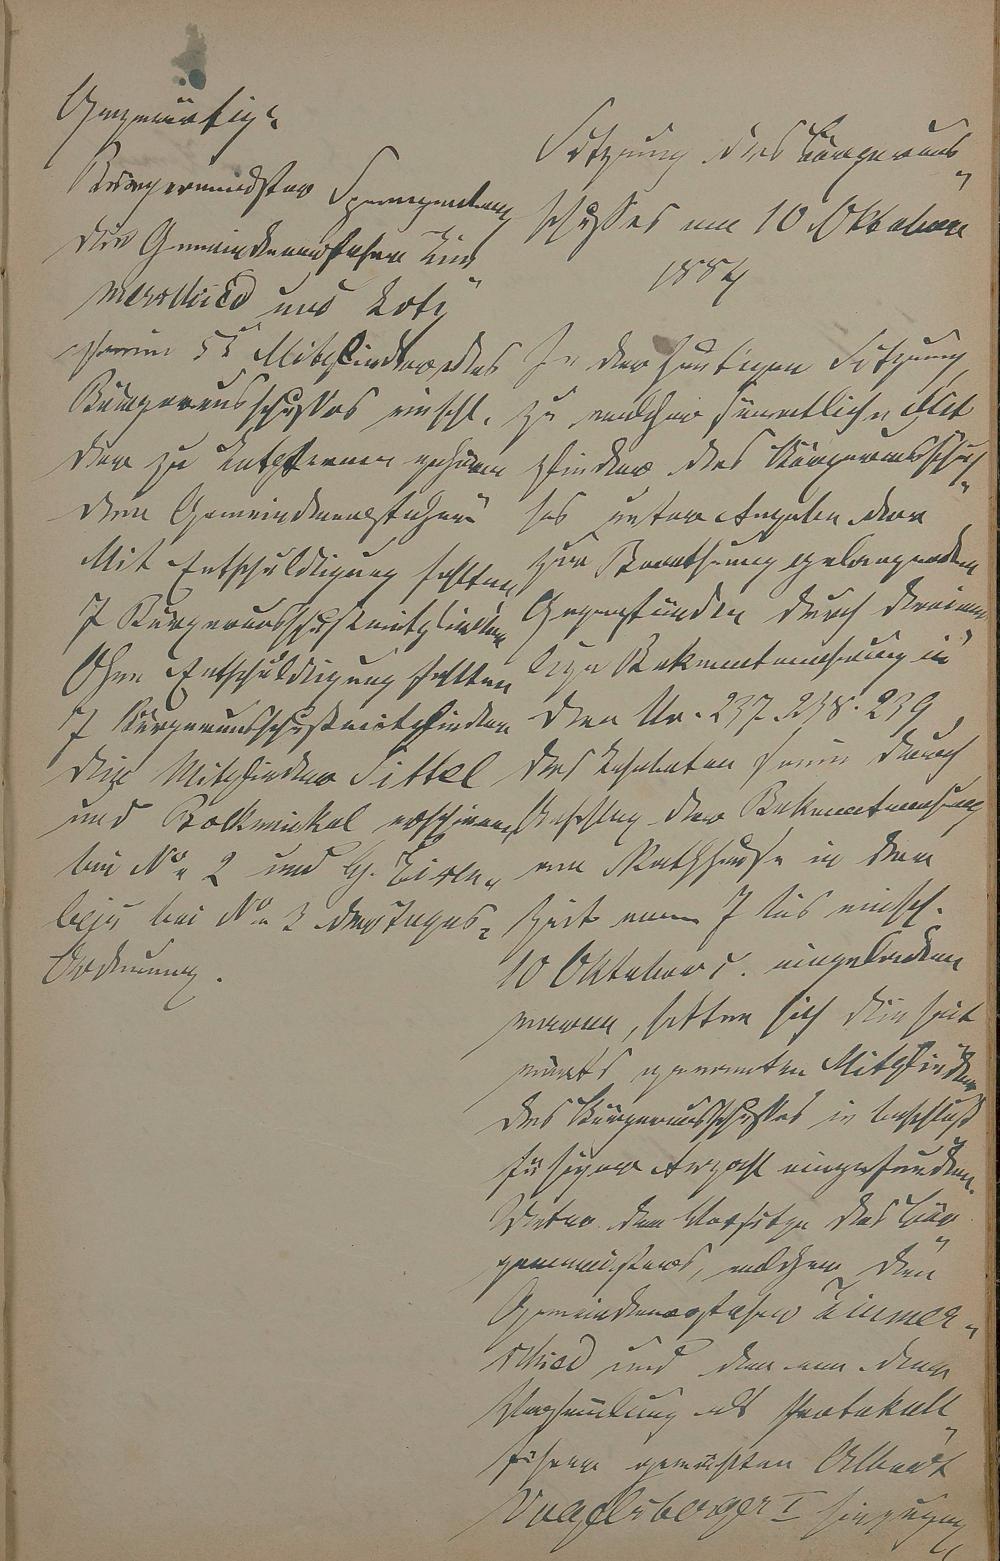 Gegenwärtig:
Bürgermeister Spangenberg
die Gemeindevorsteher Zim
merschied und Lotz
ferner 55 Mitglieder des
Bürgerausschusses einschl.
der zu Letzteren gehören
den Gemeindevorsteher
Mit Entschuldigung fehlten
7 Bürgerausschußmitglieder
Ohne Entschuldigung fehlten
7 Bürgerausschußmitglieder
Die Mitglieder Sittel
und erschienen
bei No 2 und
bei No 3 der Tages-
Ordnung.
Sitzung des Bürgeraus
schusses am 10 Oktober
1884
In der heutigen Sitzung
zu welcher sämmtliche Mit
glieder des Bürgerausschus
ses unter Angabe der
zur Berathung gelangenden
Gegenstände durch dreima
lige Bekanntmachung in
den Nr. 237. 238. 239
des durch
Anschlag der Bekanntmachung
am Rathhause in der
Zeit vom 7 bis einschl.
10 Oktober c. eingeladen
waren, hatten sich die seit
wärts genannten Mitglieder
des Bürgerausschusses in beschluß
fähiger Anzahl eingefunden.
Unter dem Vorsitze des Bür
germeisters, welcher den
Gemeindevorsteher Zimmer-
schied und den von der
Versammlung als Protokoll
führer gewählten Albert
Vogelsberger I hinzugezo